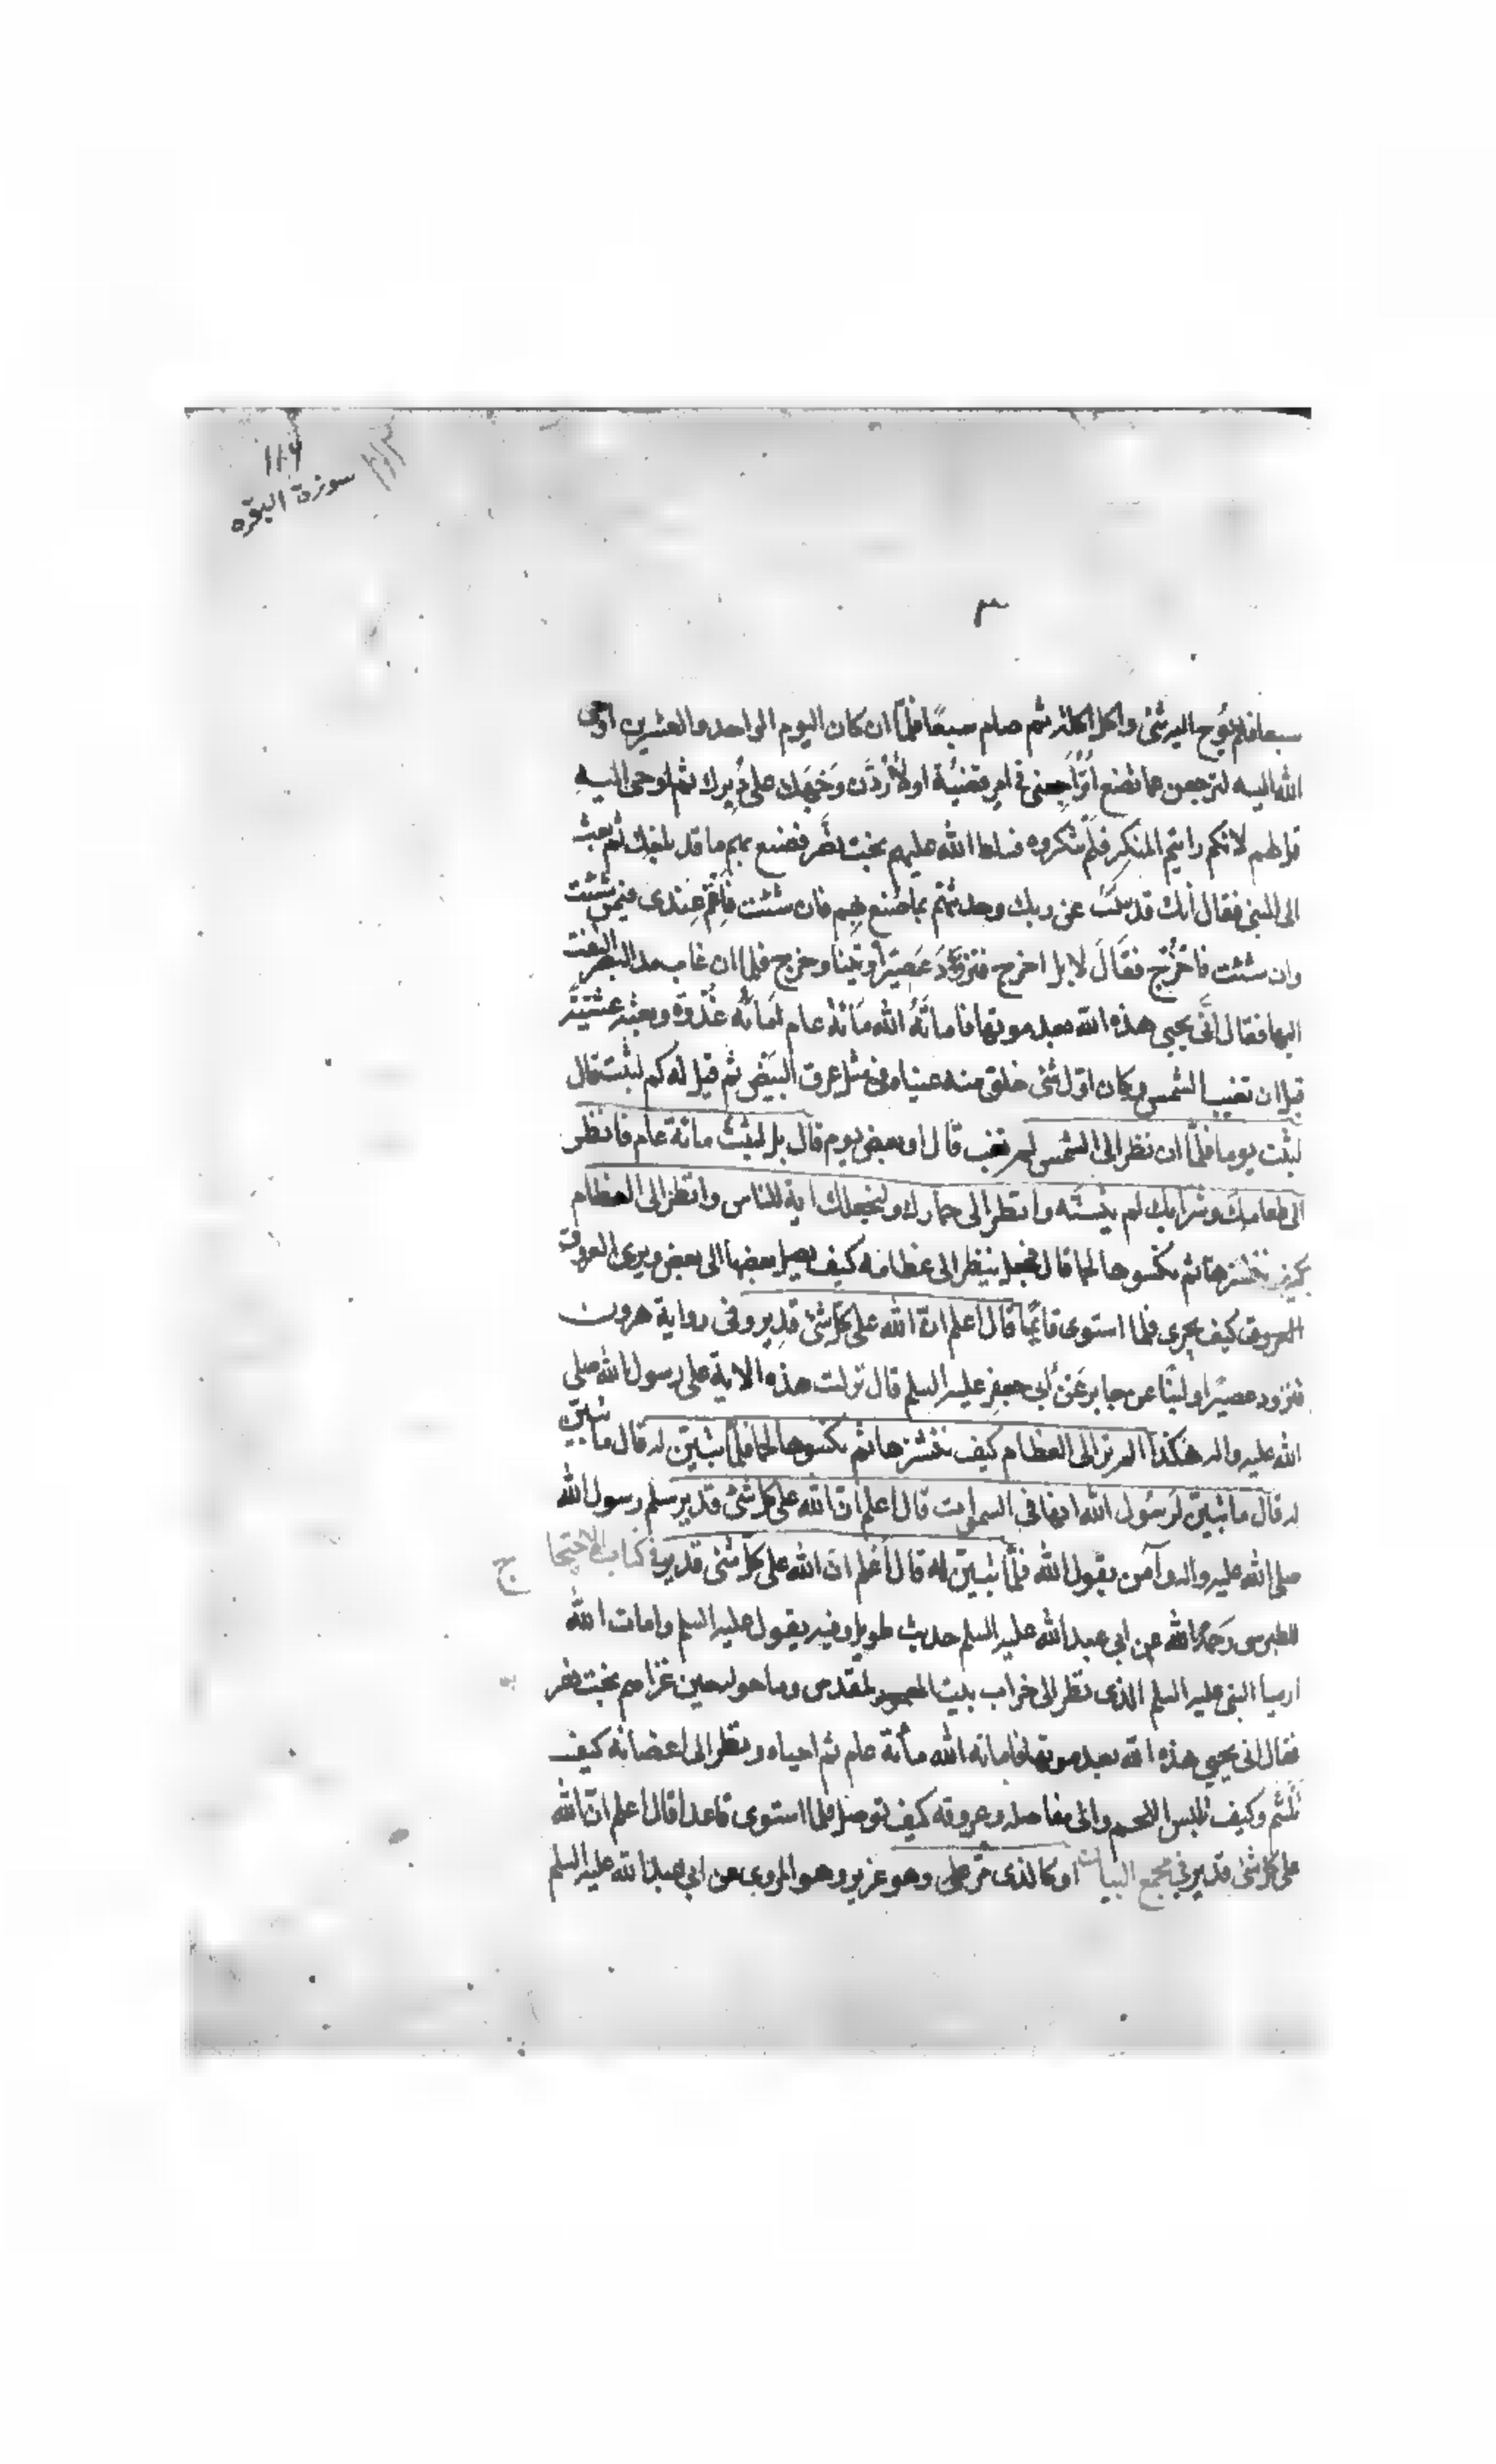 ١١٩
سورة البقره
سبعا فلم يوح اليه شئ واكل اكلة ثم صام سبعًا فلمّا ان كان اليوم الواحد والعشرين اوحى
الله اليه لترجعن عما تصنع اتراجعنى فى امر قضيته او لأردّن وجهك على دبرك ثم اوحى اليه
قل لهم لانكم رايتم المنكر فلم تنكروه فسلط الله عليهم بخت نصّر فصنع بهم ما قد بلغك ثم بعث
الى النبى فقال انك قد نبئت عن ربك وحدثتهم بما اصنع بهم فان شئت فاقم عندى فيمن شئت
وان شئت فاخرج فقال لا بل اخرج فتزود عصيرًا وتينا وخرج فلما ان غاب مد البصر التفت
اليها فقال انّى يحيى هذه الله بعد موتها فاماته الله مائة عام اماته غدوة وبعثه عشيّة
قبل ان تغيب الشمس وكان اوّل شئ خلق منه عيناه فى مثل عرق البيض ثم قيل له كم لبثت قال
لبثت يوما فلمّا ان نظر الى الشمس لم تغب قال او بعض يوم قال بل لبثت مائة عام فانظر
الى طعامك وشرابك لم يتسنّه وانظر الى حمارك ولنجعلك اية للناس وانظر الى العظام
كيف ننشزها ثم نكسوها لحما قال فجعل ينظر الى عظامه كيف يصل بعضها الى بعض ويرى العروق
العروق كيف يجرى فلما استوى قائمًا قال اعلم انّ الله على كل شئ قدير وفى رواية هرون
فتزود عصيرًا ولبنًا عن جابر عن أبى جعفر عليه السلم قال نزلت هذه الاية على رسول الله صلى
الله عليه واله هكذا الم تر الى العظام كيف ننشزها ثم نكسوها لحما فلمّا تبيّن له قال ما تبيّن
له قال ما تبيّن لرسول الله انها فى السموات قال اعلم انّ الله على كل شئ قدير سلم رسول الله
صلى الله عليه واله وآمن بقول الله فلمّا تبيّن له قال اعلم انّ الله على كل شئ قدير فى كتاب الاحتجا ج
للطبرسى رحمه الله عن ابى عبد الله عليه السلم حديث طويل وفيه يقول عليه السلم وامات الله
ارميا النبى عليه السلم الذى نظر الى خراب بيت المقدس وما حوله حين غزاهم بخت نصر
فقال انى يحيى هذه الله بعد موتها فاماته الله مأئة عام ثم احياه ونظر الى اعضائه كيف
تلتئم وكيف تلبس اللحم والى مفاصله وعروقه كيف توصل فلما استوى قاعدا قال اعلم انّ الله
على كل شئ قدير فى مجمع البيان او كالذى مرّ على وهو عزير وهو المروى عن ابى عبد الله عليه السلم